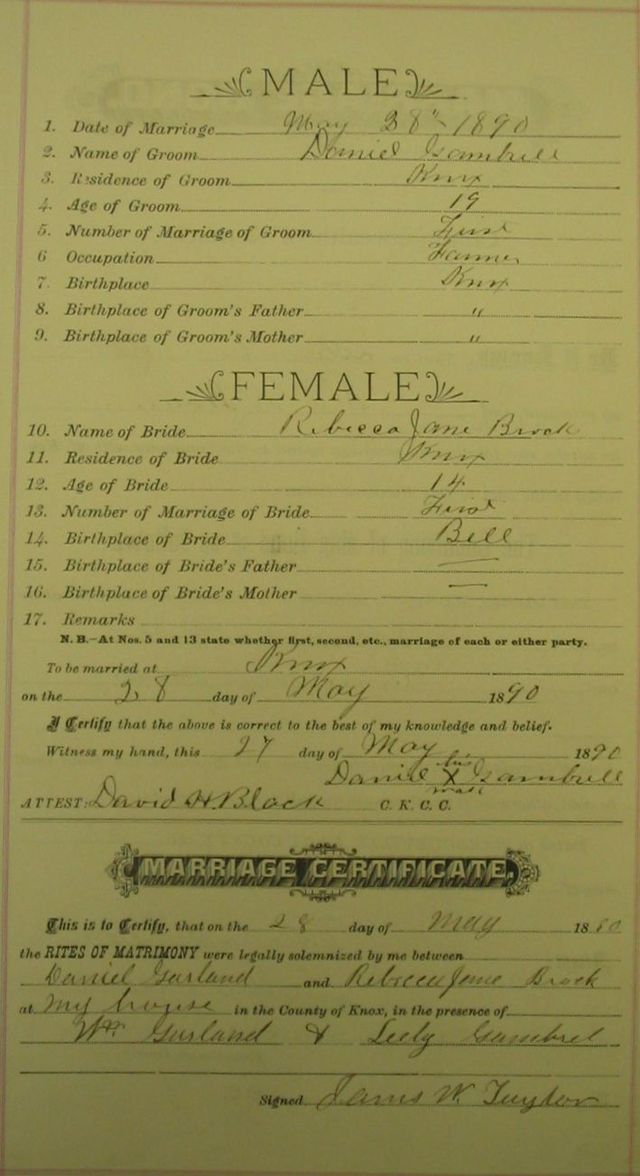 MALE
1. Date of Marriage May 28th 1890
2. Name of Groom Daniel Gambrell
3. Residence of Groom Knox
4. Age of Groom 19
5. Number of Marriage of Groom First
6 Occupation Farmer
7. Birthplace Knox
8. Birthplace of Groom's Father "
9. Birthplace of Groom's Mother "
FEMALE
10. Name of Bride Rebecca Jane Brock
11. Residence of Bride Knox
12. Age of Bride 14
13. Number of Marriage of Bride First
14. Birthplace of Bride Bell
15. Birthplace of Bride's Father —
16. Birthplace of Bride's Mother —
17. Remarks
N. B.—At Nos. 5 and 13 state whether first, second, etc., marriage of each or either party.
To be married at Knox
on the 28 day of May 1890
I Certify that the above is correct to the best of my knowledge and belief.
Witness my hand, this 27 day of May 1890
his
Daniel X Gambrell
mark
ATTEST: David H. Black C. K. C. C.
MARRIAGE CERTIFICATE.
This is to Certify, that on the 28 day of May 18
the RITES OF MATRIMONY were legally solemnized by me between
Daniel Garland and Rebecca Jane Brock
at my house in the County of Knox, in the presence of
Wm Garland &
Signed James W.